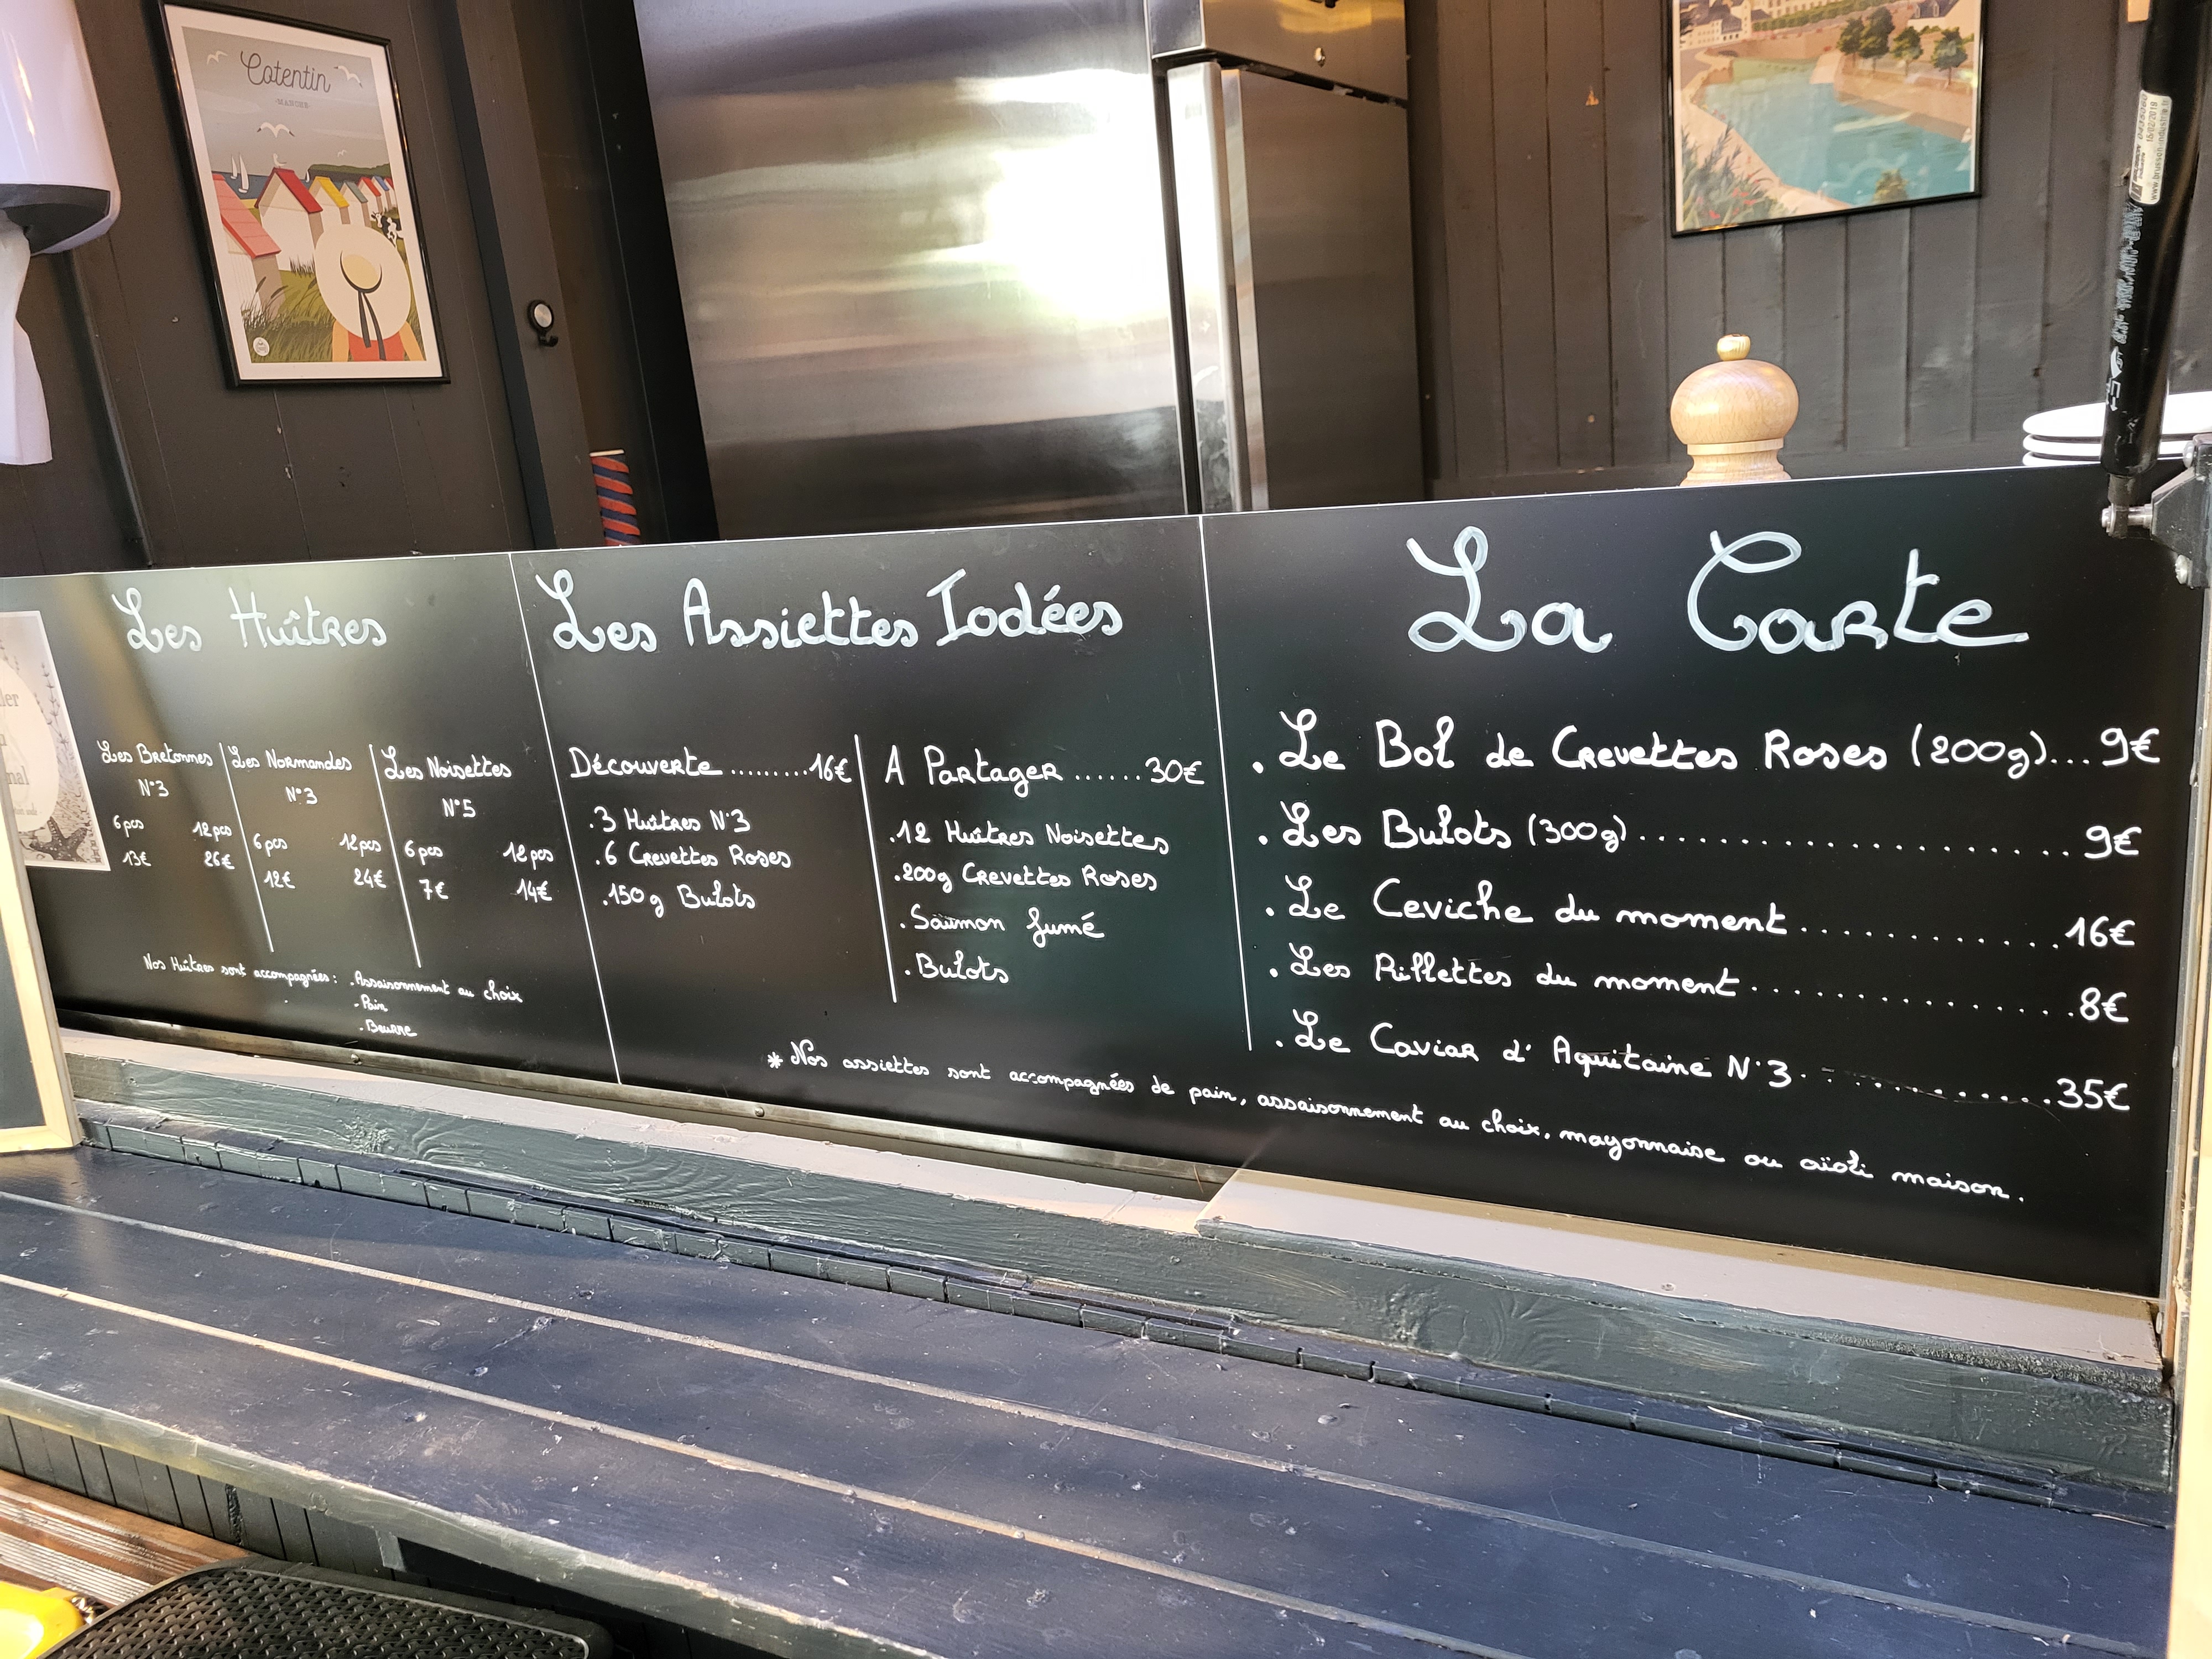 Cotentin
·MANCHE·
Les Huîtres
Les Bretonnes
N°3
6 pcs 12 pcs
13€ 26€
Les Normandes
N°3
6 pcs 12 pcs
12€ 24€
Les Noisettes
N°5
6 pcs 12 pcs
7€ 14€
Nos Huîtres sont accompagnées : . Assaisonnement au choix
. Pain
. Beurre
Les Assiettes Iodées
Découverte .........16€
.3 Huîtres N°3
.6 Crevettes Roses
.150g Bulots
A Partager ......30€
.12 Huîtres Noisettes
.200g Crevettes Roses
.Saumon fumé
.Bulots
La Carte
. Le Bol de Crevettes Roses (200g)...9€
. Les Bulots (300g).................... 9€
. Le Ceviche du moment............16€
. Les Rillettes du moment...............8€
. Le Caviar d'Aquitaine N°3............35€
* Nos assiettes sont accompagnées de pain, assaisonnement au choix, mayonnaise ou aïoli maison.